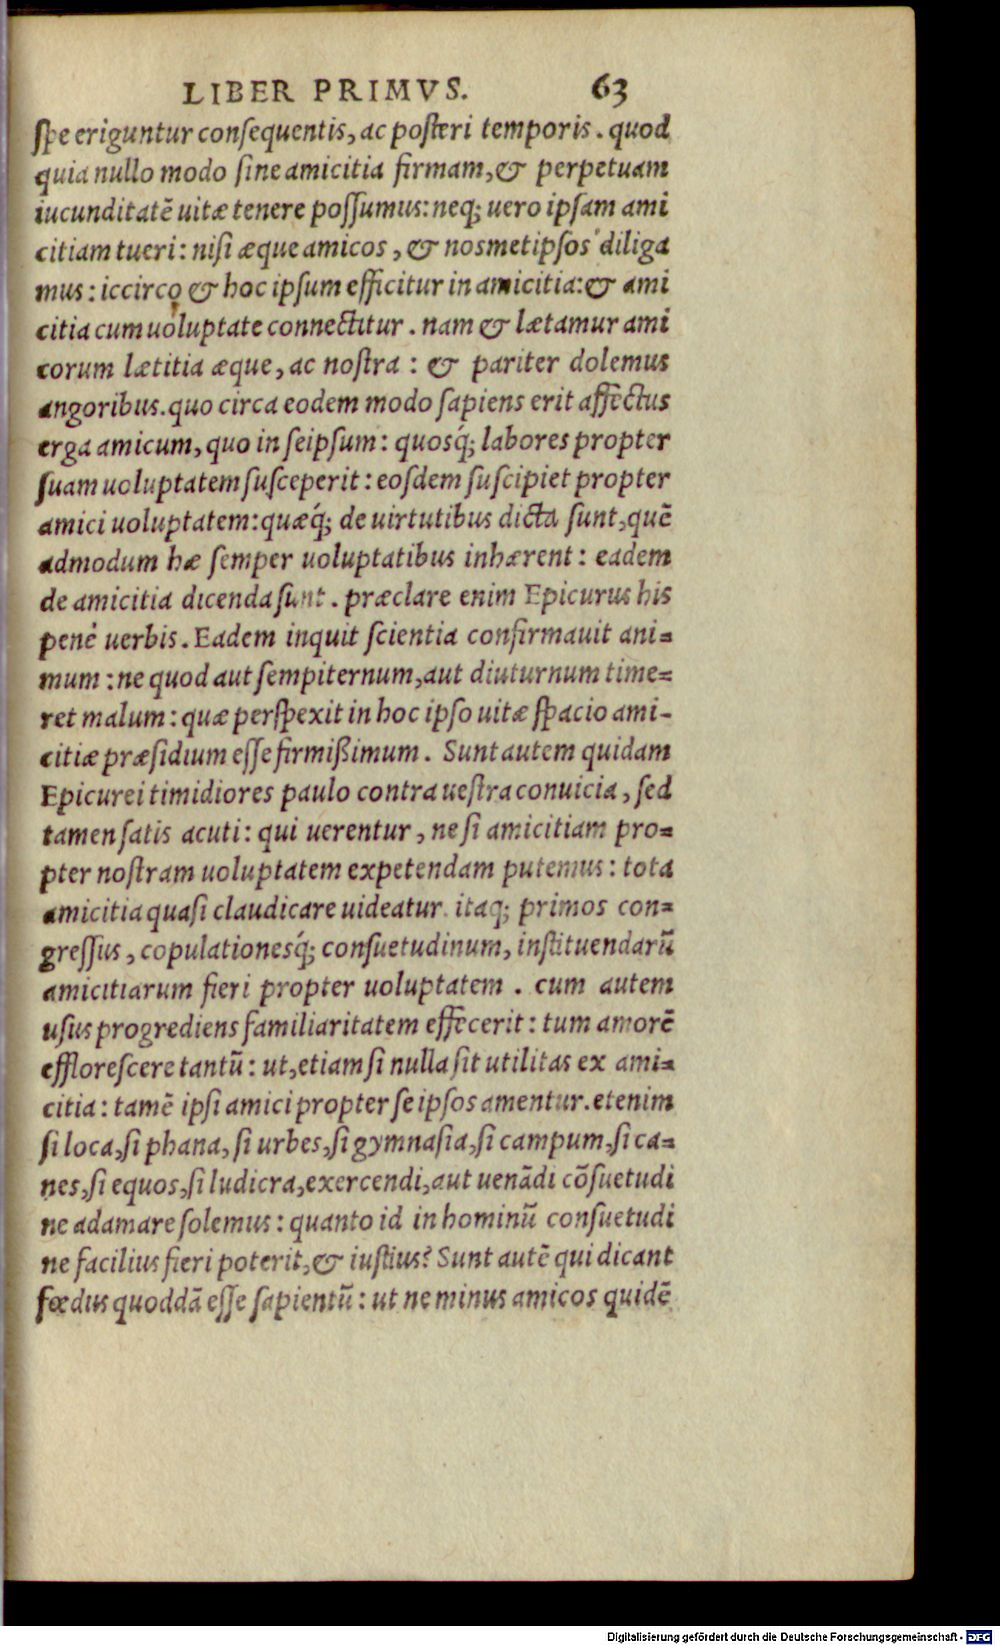 LIBER PRIMVS. 63
ſpe eriguntur conſequentis, ac poſteri temporis. quod
quia nullo modo ſine amicitia firmam, & perpetuam
iucunditatē uitæ tenere poſſumus: neq; uero ipſam ami
citiam tueri: niſi æque amicos, & noſmetipſos diliga
mus: iccirco & hoc ipſum efficitur in amicitia: & ami
citia cum uoluptate connectitur. nam & lætamur ami
corum lætitia æque, ac noſtra: & pariter dolemus
angoribus. quo circa eodem modo ſapiens erit affectus
erga amicum, quo in ſeipſum: quosq́; labores propter
ſuam uoluptatem ſuſceperit: eoſdem ſuſcipiet propter
amici uoluptatem: quæq́; de uirtutibus dicta ſunt, quē
admodum hæ ſemper uoluptatibus inhærent: eadem
de amicitia dicenda ſunt. præclare enim Epicurus his
penè uerbis. Eadem inquit ſcientia confirmauit ani=
mum: ne quod aut ſempiternum, aut diuturnum time=
ret malum: quæ perſpexit in hoc ipſo uitæ ſpacio ami-
citiæ præſidium eſſe firmißimum. Sunt autem quidam
Epicurei timidiores paulo contra ueſtra conuicia, ſed
tamen ſatis acuti: qui uerentur, ne ſi amicitiam pro=
pter noſtram uoluptatem expetendam putemus: tota
amicitia quaſi claudicare uideatur. itaq; primos con=
greſſus, copulationesq́; conſuetudinum, inſtituendarū
amicitiarum fieri propter uoluptatem. cum autem
uſus progrediens familiaritatem effecerit: tum amorē
effloreſcere tantū: ut, etiam ſi nulla ſit utilitas ex ami=
citia: tamē ipſi amici propter ſe ipſos amentur. etenim
ſi loca, ſi phana, ſi urbes, ſi gymnaſia, ſi campum, ſi ca=
nes, ſi equos, ſi ludicra, exercendi, aut uenādi cōſuetudi
ne adamare ſolemus: quanto id in hominū conſuetudi
ne facilius fieri poterit, & iuſtius? Sunt autē qui dicant
fœdus quoddā eſſe ſapientū: ut ne minus amicos quidē
Digitalisierung gefördert durch die Deutsche Forschungsgemeinschaft - DFG